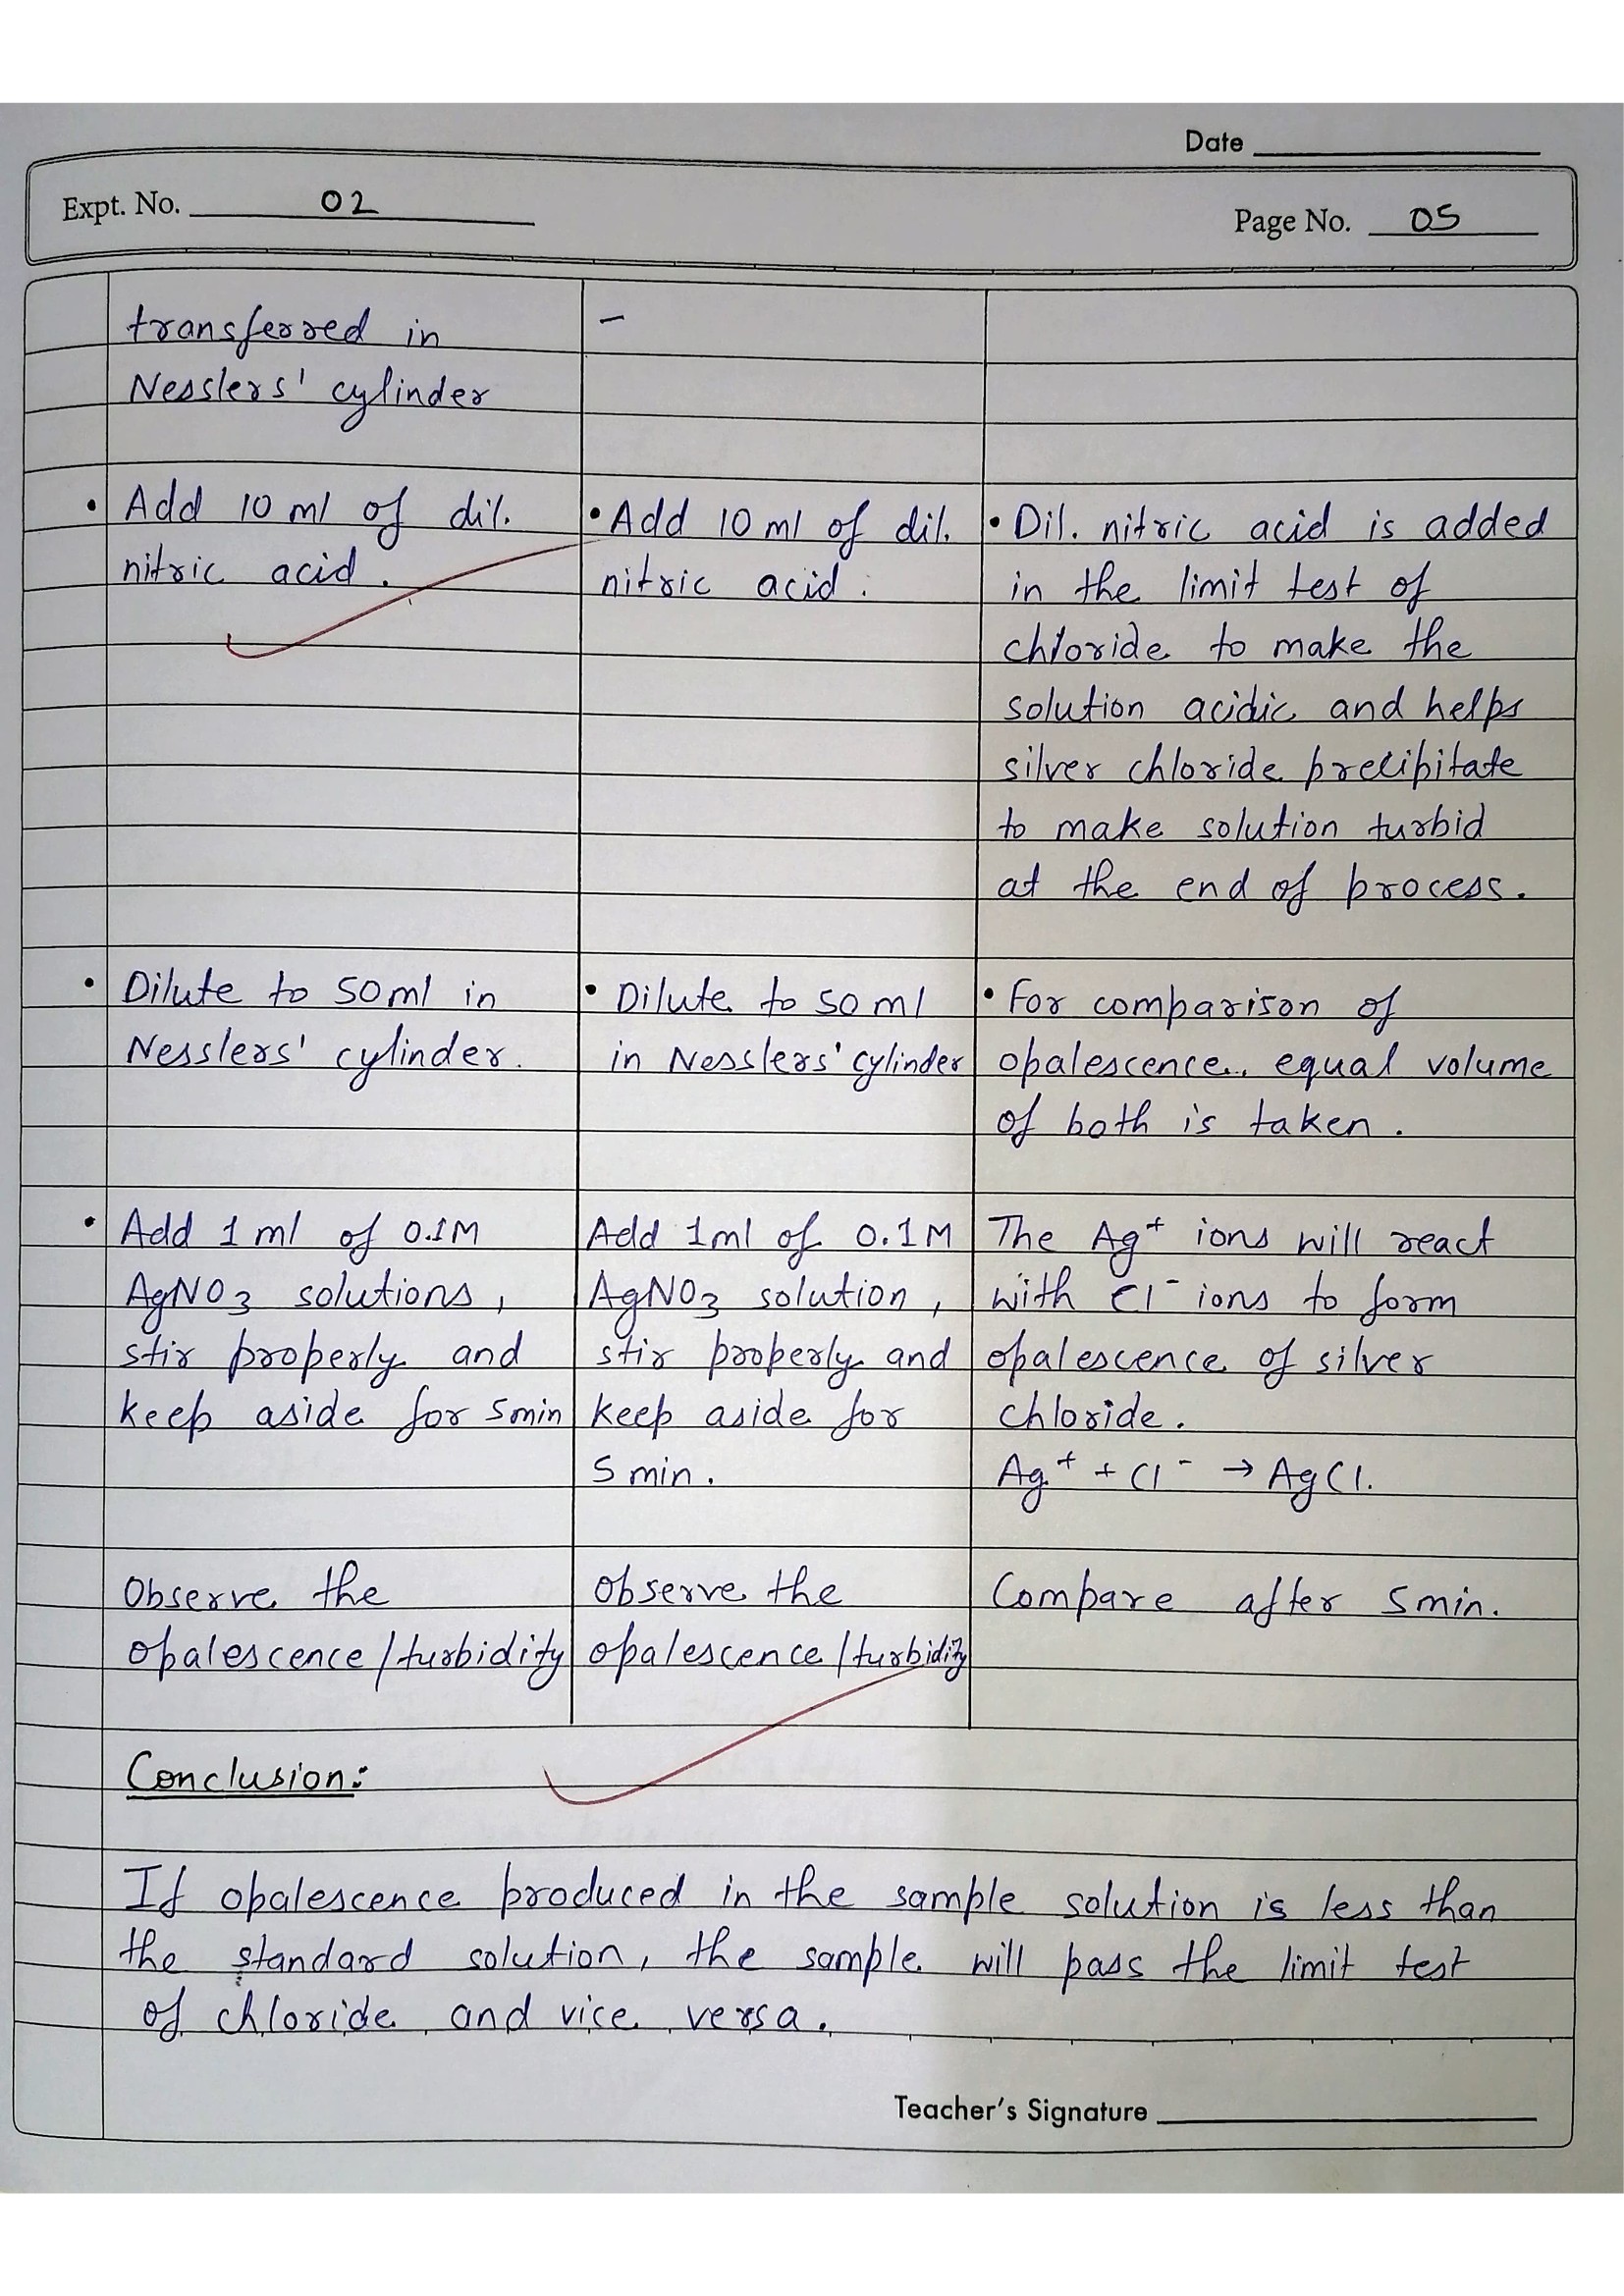 Date
Expt. No. 02
Page No. 05
transferred in
Nesslers' cylinder
–
• Add 10 ml of dil.
nitric acid.
• Add 10 ml of dil.
nitric acid.
• Dil. nitric acid is added
in the limit test of
chloride to make the
solution acidic and helps
silver chloride precipitate
to make solution turbid
at the end of process.
• Dilute to 50ml in
Nesslers' cylinder.
• Dilute to 50 ml
in Nesslers' cylinder
• For comparison of
opalescence, equal volume
of both is taken.
• Add 1 ml of 0.1M
AgNO3 solutions,
stir properly and
keep aside for 5min
Add 1ml of 0.1M
AgNO3 solution,
stir properly and
keep aside for
5 min.
The Ag⁺ ions will react
with Cl⁻ ions to form
opalescence of silver
chloride.
Ag⁺ + Cl⁻ → AgCl.
Observe the
opalescence/turbidity
Observe the
opalescence/turbidity
Compare after 5min.
Conclusion:
If opalescence produced in the sample solution is less than
the standard solution, the sample will pass the limit test
of chloride and vice versa.
Teacher's Signature